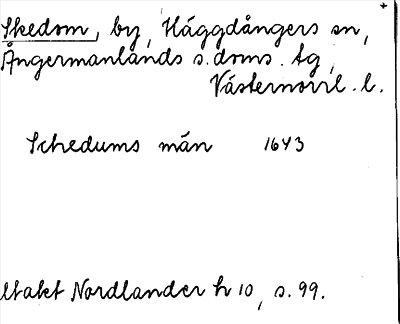 Skedom, by, Häggdångers sn,
Ångermanlands s. doms. tg,
Västernorrl. l.
Schedums män 1643
Utakt Nordlander h 10, s. 99.